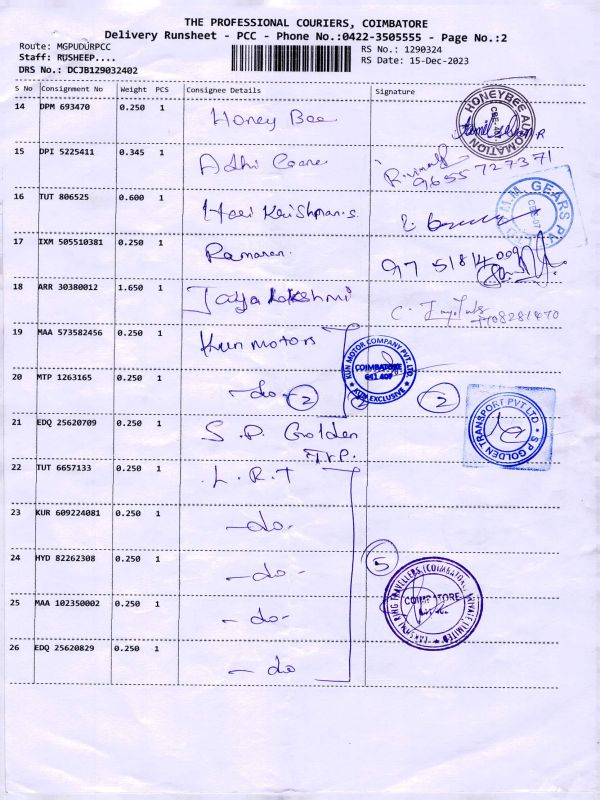 THE PROFESSIONAL COURIERS, COIMBATORE
Delivery Runsheet - PCC - Phone No.:0422-3505555 - Page No.:2
Route: MGPUDURPCC RS No.: 1290324
Staff: RUSHEEP.... RS Date: 15-Dec-2023
DRS No.: DCJB129032402
S No Consignment No Weight PCS Consignee Details Signature
14 DPM 693470 0.250 1 Honey Bee
HONEYBEE AUTOMATION
15 DPI 5225411 0.345 1 Adhi
9655727371
16 TUT 806525 0.600 1 Hari Krishnan.s
M.M. GEARS PVT
17 IXM 505510381 0.250 1 Ramanan.
18 ARR 30380012 1.650 1 Jaya Lakshmi
19 MAA 573582456 0.250 1 Kun motors
KUN MOTOR COMPANY PVT. LTD.
COIMBATORE
641 407
KUN EXCLUSIVE
20 MTP 1263165 0.250 1 -do- 2 2
21 EDQ 25620709 0.250 1 S.P. Golden
Trp.
S P GOLDEN TRANSPORT PVT LTD
22 TUT 6657133 0.250 1 L.R.T
23 KUR 609224081 0.250 1 -do-
24 HYD 82262308 0.250 1 -do- 5
25 MAA 102350002 0.250 1 -do-
LAKSHMI RING TRAVELLERS (COIMBATORE) PRIVATE LIMITED
COIMBATORE
26 EDQ 25620829 0.250 1 -do